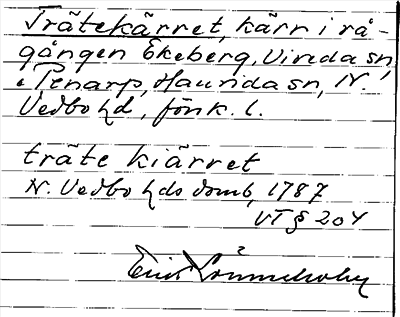 Trätekärret, kärr i rå-
gången Ekeberg, Vireda sn,
i Penarp, Haurida sn, N.
Vedbo hd, Jönk. l.
träte kiärret
N. Vedbo hds domb, 1787
VT § 204
Erik